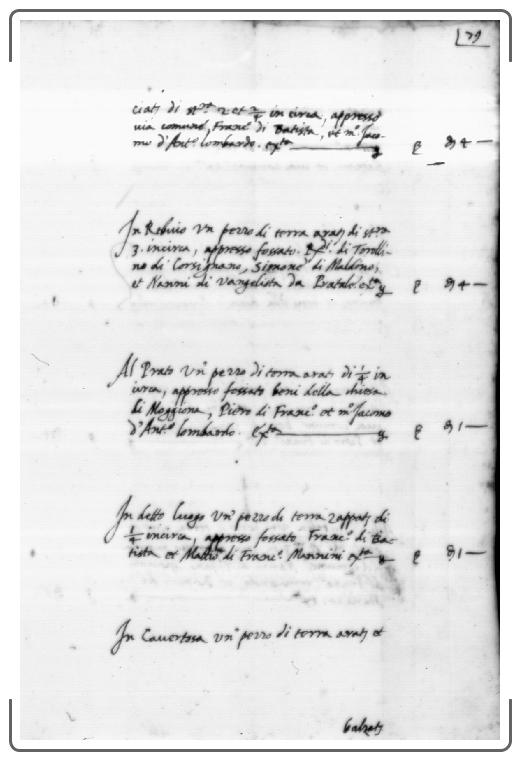 79
ciatj di st.re 2 et 3/4 in circa, appresso
via comune, Franc.o di Batista, et m.o Jaco-
mo d'Ant.o lombardo. ex.ta
In Rebuio un pezzo di terra aratj di stra
3. incirca, appresso fossato. di Torelli-
no di Corsignano, Simone di
et Nanni di Vangelista da Pratale
Al Prato un pezzo di terra arat. di 1/4 in
circa, appresso fossato beni della chiesa
di Moggiona, Piero di Franc.o et m.o Jacomo
d'Ant.o lombardo. ex.ta
In detto luogo un pezzo di terra zappatj di
1/4 incirca, appresso fossato, Franc.o di Ba-
tista et Matteo di Franc.o Mannini ex.ta
In Cavertosa un pezzo di terra aratj et
balzatj